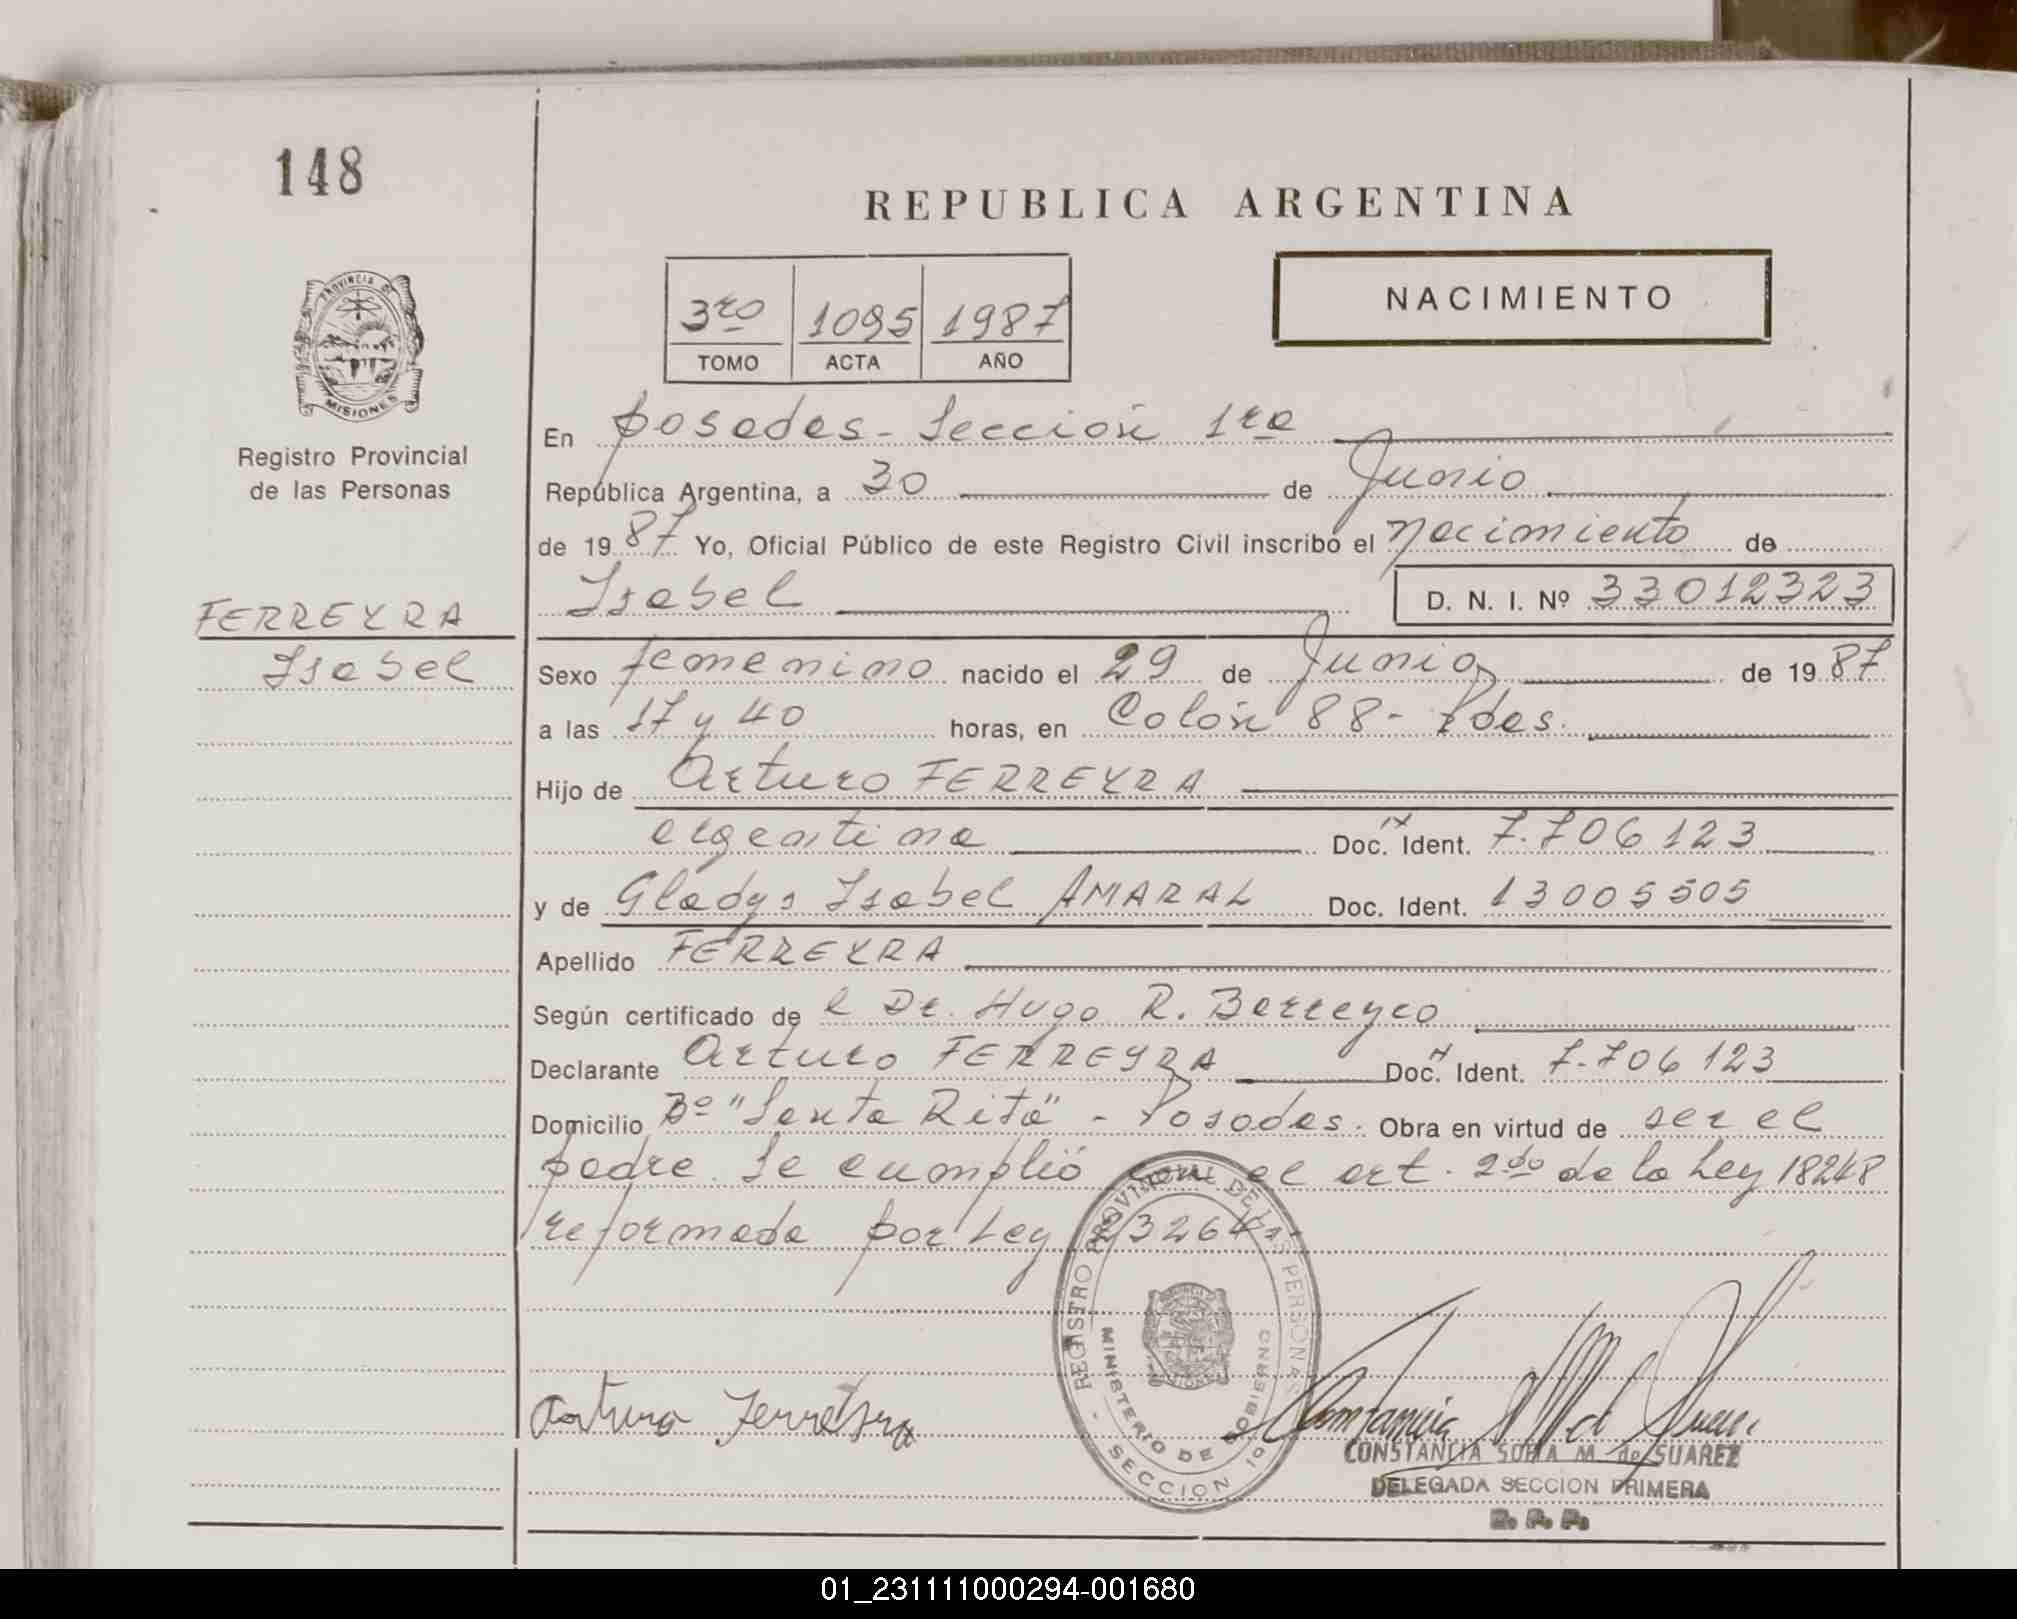 148
REPUBLICA ARGENTINA
PROVINCIA DE
MISIONES
Registro Provincial
de las Personas
3ro 1095 1987
TOMO ACTA AÑO
NACIMIENTO
En posadas - Sección 1ra
República Argentina, a 30 de Junio
de 1987 Yo, Oficial Público de este Registro Civil inscribo el nacimiento de
Isabel D. N. I. Nº 33012323
FERREYRA
Isabel
Sexo femenino nacido el 29 de Junio de 1987
a las 17 y 40 horas, en Colón 88 - Pdas.
Hijo de Arturo FERREYRA
argentina Doc. Ident. 7.706123
y de Gladys Isabel AMARAL Doc. Ident. 13005505
Apellido FERREYRA
Según certificado de l Dr. Hugo R. Barreyro
Declarante Arturo FERREYRA Doc. Ident. 7.706123
Domicilio Bº "Santa Rita" - Posadas. Obra en virtud de ser el
padre. Se cumplió con el art. 2do de la Ley 18248
reformada por Ley 23264.-
REGISTRO PROVINCIAL DE LAS PERSONAS
MINISTERIO DE GOBIERNO
- SECCION 1º
Arturo Ferreyra
CONSTANCIA SOFIA M. de SUAREZ
DELEGADA SECCION PRIMERA
R. P. P.
01_231111000294-001680